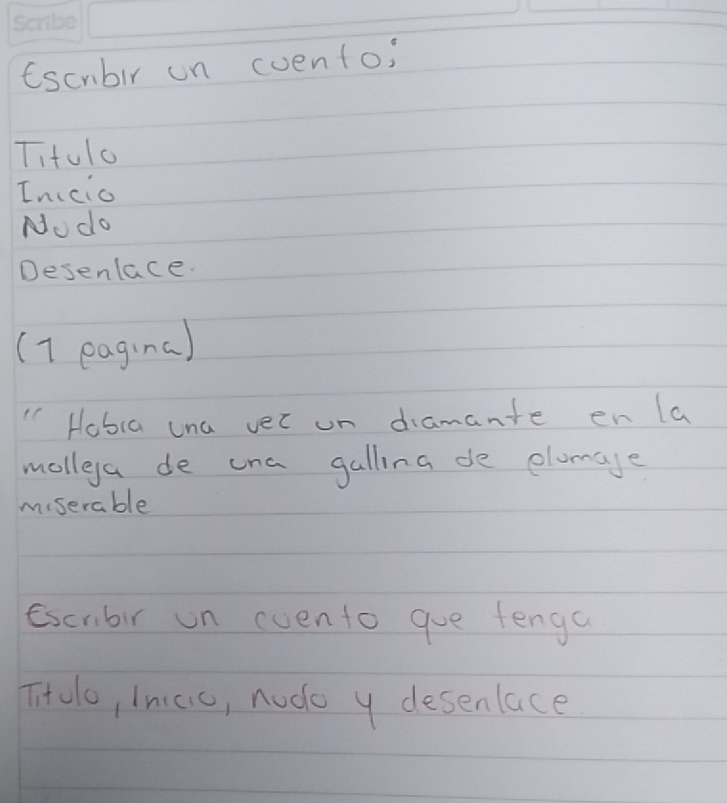 Scribe
Escribir un cuento:
Titulo
Inicio
Nudo
Desenlace.
(1 pagina)
" Habia una vez un diamante en la
molleja de una gallina de plumaje
miserable
Escribir un cuento que tenga
Titulo, Inicio, nudo y desenlace.